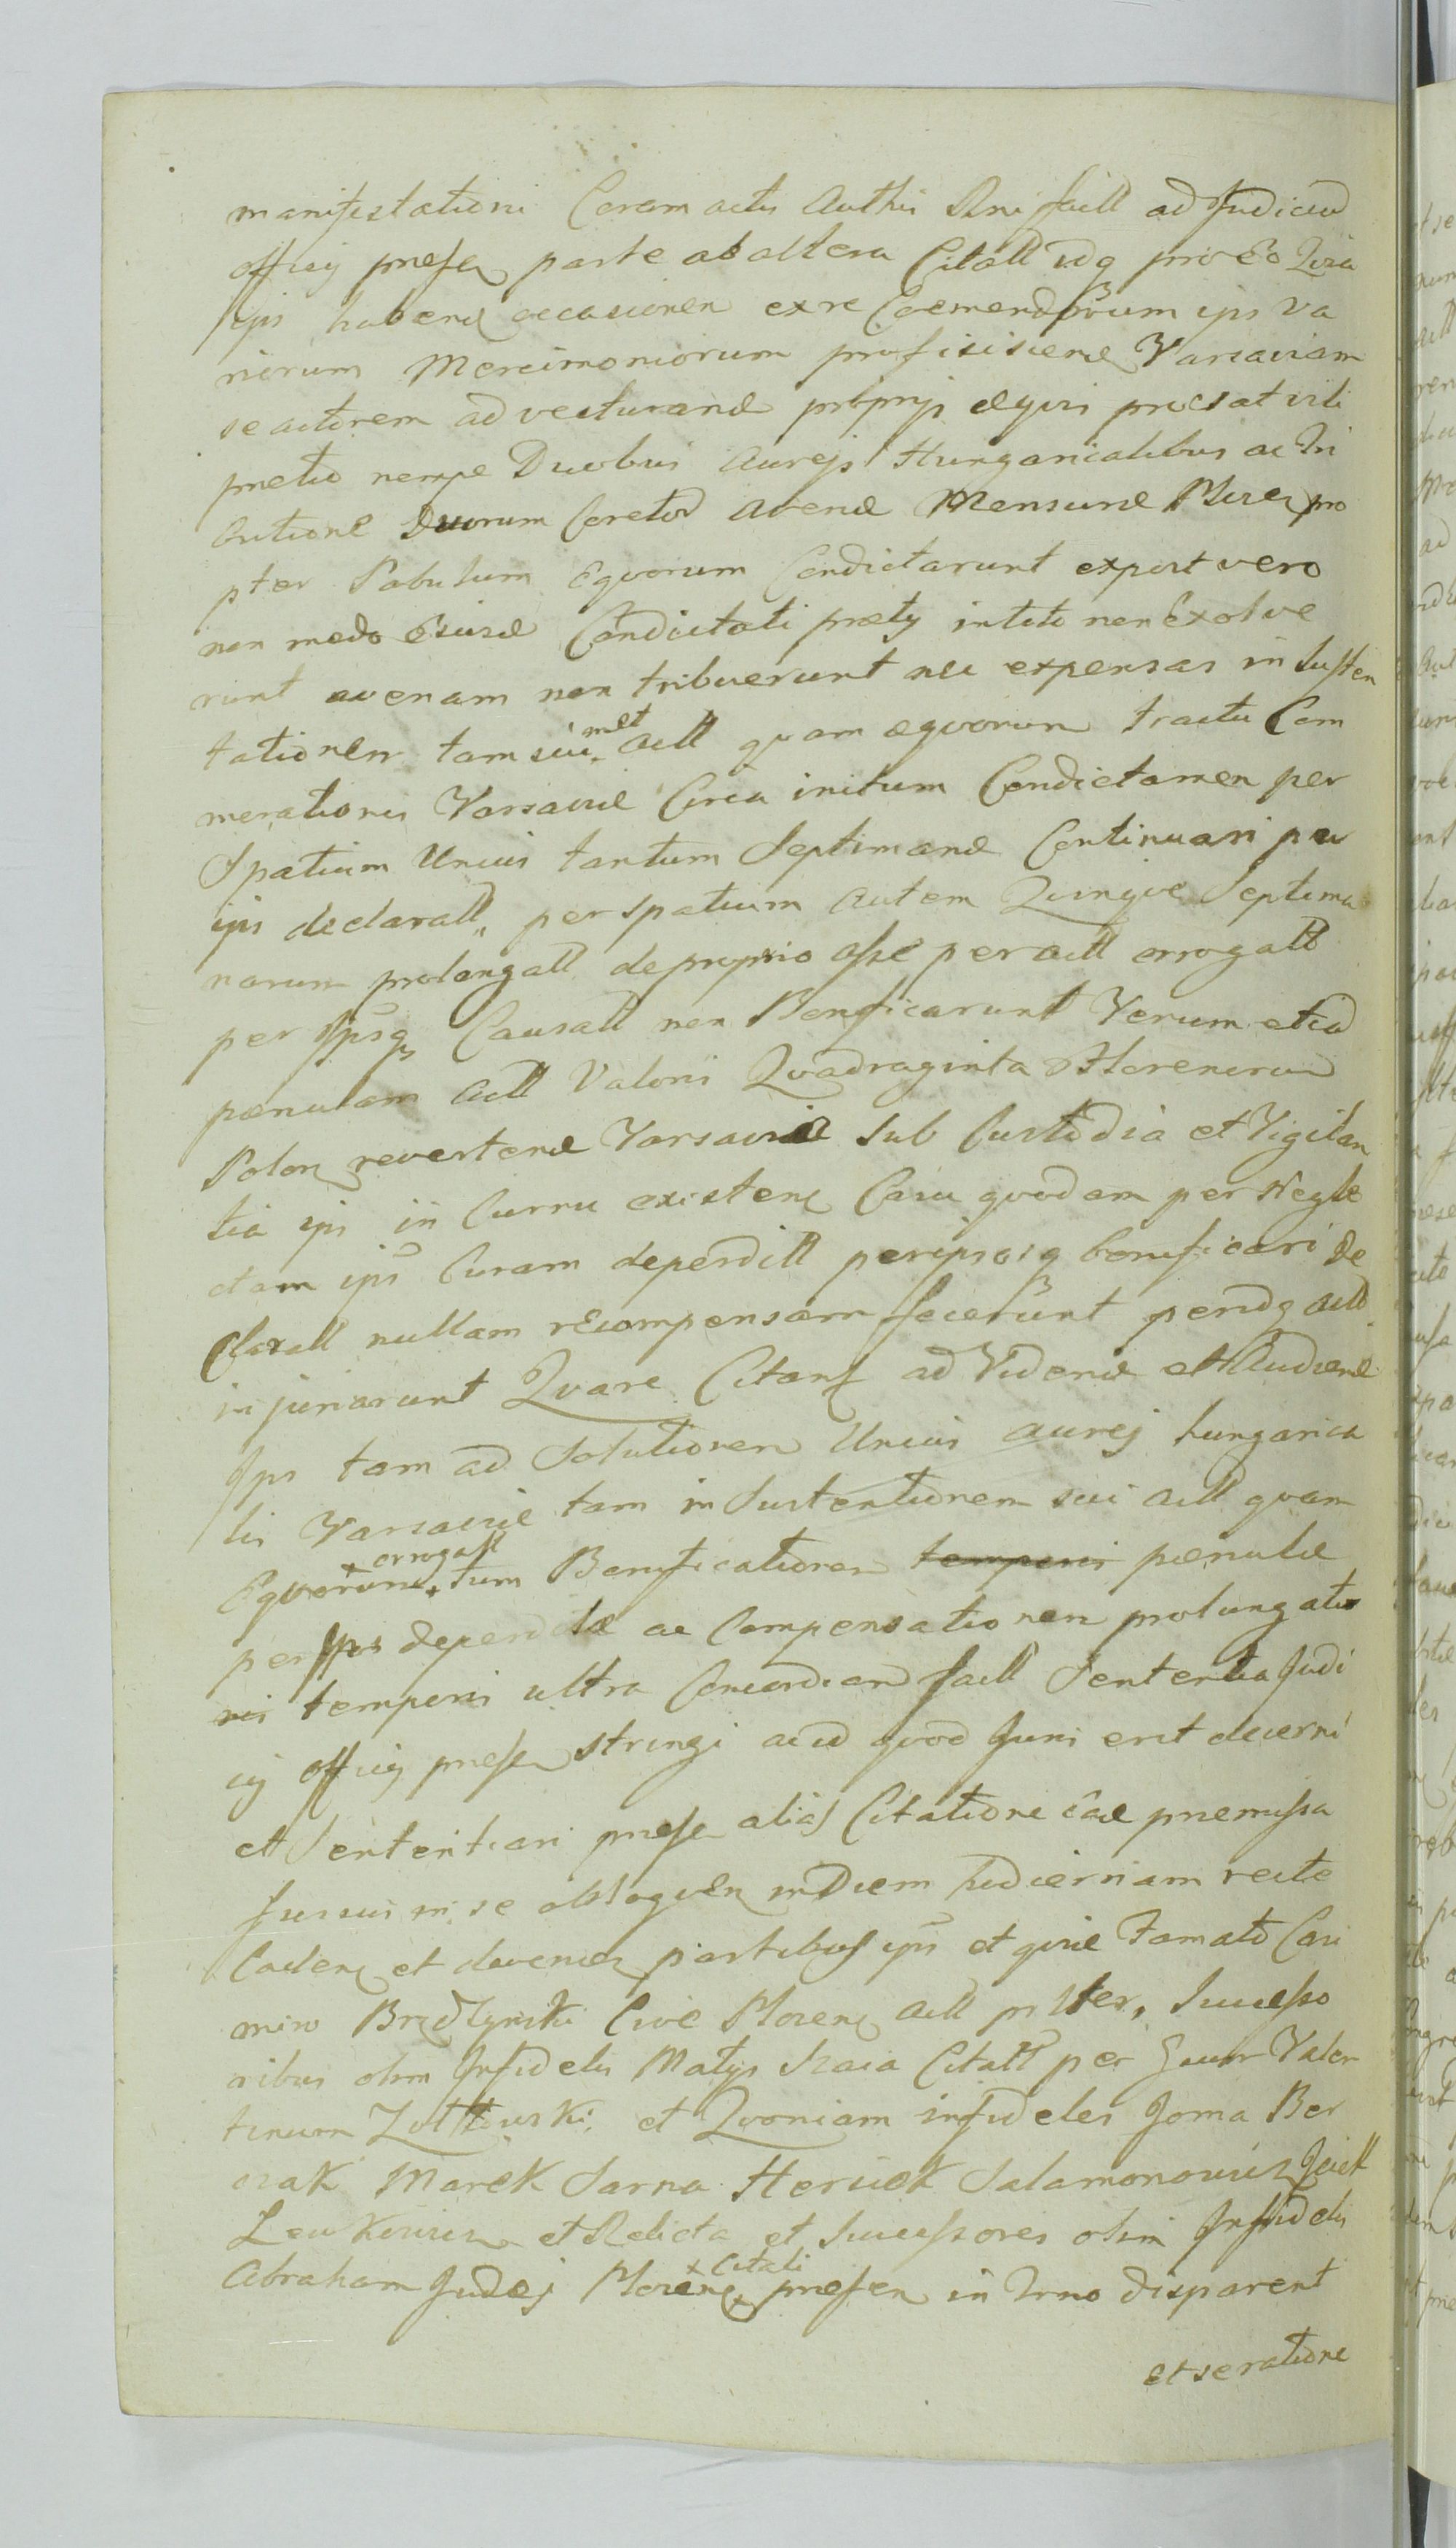 manifestationi Coram actis Authis Rni factt ad Judiciu
officij presen parte ab altera Citatt idq pro eo Quia
ipsi habenq occasionem ex re Coemendorum ipsis va
riorum Mercimoniorum proficisciend Varsaviam
se actorem ad vecturand proprijs equis pro sat vili
pretio nempe Duobus Aureis Hungaricalibus ac Tri
butione Duorum Coretor Avenæ Mensuræ Plocen pro
pter Pabulum Equorum Condictarunt expost vero
non modo Condictati prætij in toto non Exolve
runt avenam non tribuerunt nec expensas in susten
tationem tam sui met actt quam equorum tractu Com
merationis Varsaviæ Circa initum Condictamen per
Spatium Unius tantum Septimanæ Continuari per
ipsos declaratt, per spatium autem Quinque Septima
narum prolongatt de proprio asse per actt errogatt
per ipsosq Causatt non Bonificarunt Verum etia
penulam actt Valoris Quadraginta Florenorum
Polon revertend Varsaviæ sub Custodia et Vigilan
tia ipsis in Curru existenq Casu quodam per Negle
ctam ipsis Curam deperditt per ipsosq bonificari De
claratt nullam recompensam fecerunt peridq actt
injuriarunt Quare Citanq ad Vidend et Audiend
Ipsis tam ad Solutionem Unius aurej hungarica
lis Varsaviæ tam in Sustentationem sui actt quam
Equorum + errogatt tum Bonificationem temporis penulæ
per Ipsos deperditæ ac Compensationem prolungatio
nis temporis ultra Concordiam factt Sententia Judi
cij officij presen stringi aliud quod Juris erit decerni
et Sententiari presen alias Citatione eae premissa
fusius in se obloquen in Diem hodiernam recte
Caden et devenien partibus ipsis et quive Famato Casi
miro Brudzynski Cive Plocen actt pnter, Successo
ribus olim Infidelis Matys Szaia Citatt per Valen
tinum et Quoniam infideles Joma Ber
szak Marek Sarna Herszek Salamonowicz Jcick
Lewkowicz et Relicta et Successores olim Infidelis
Abraham Judej Plocen + Citati presen in Trno disparent
Et se ratione